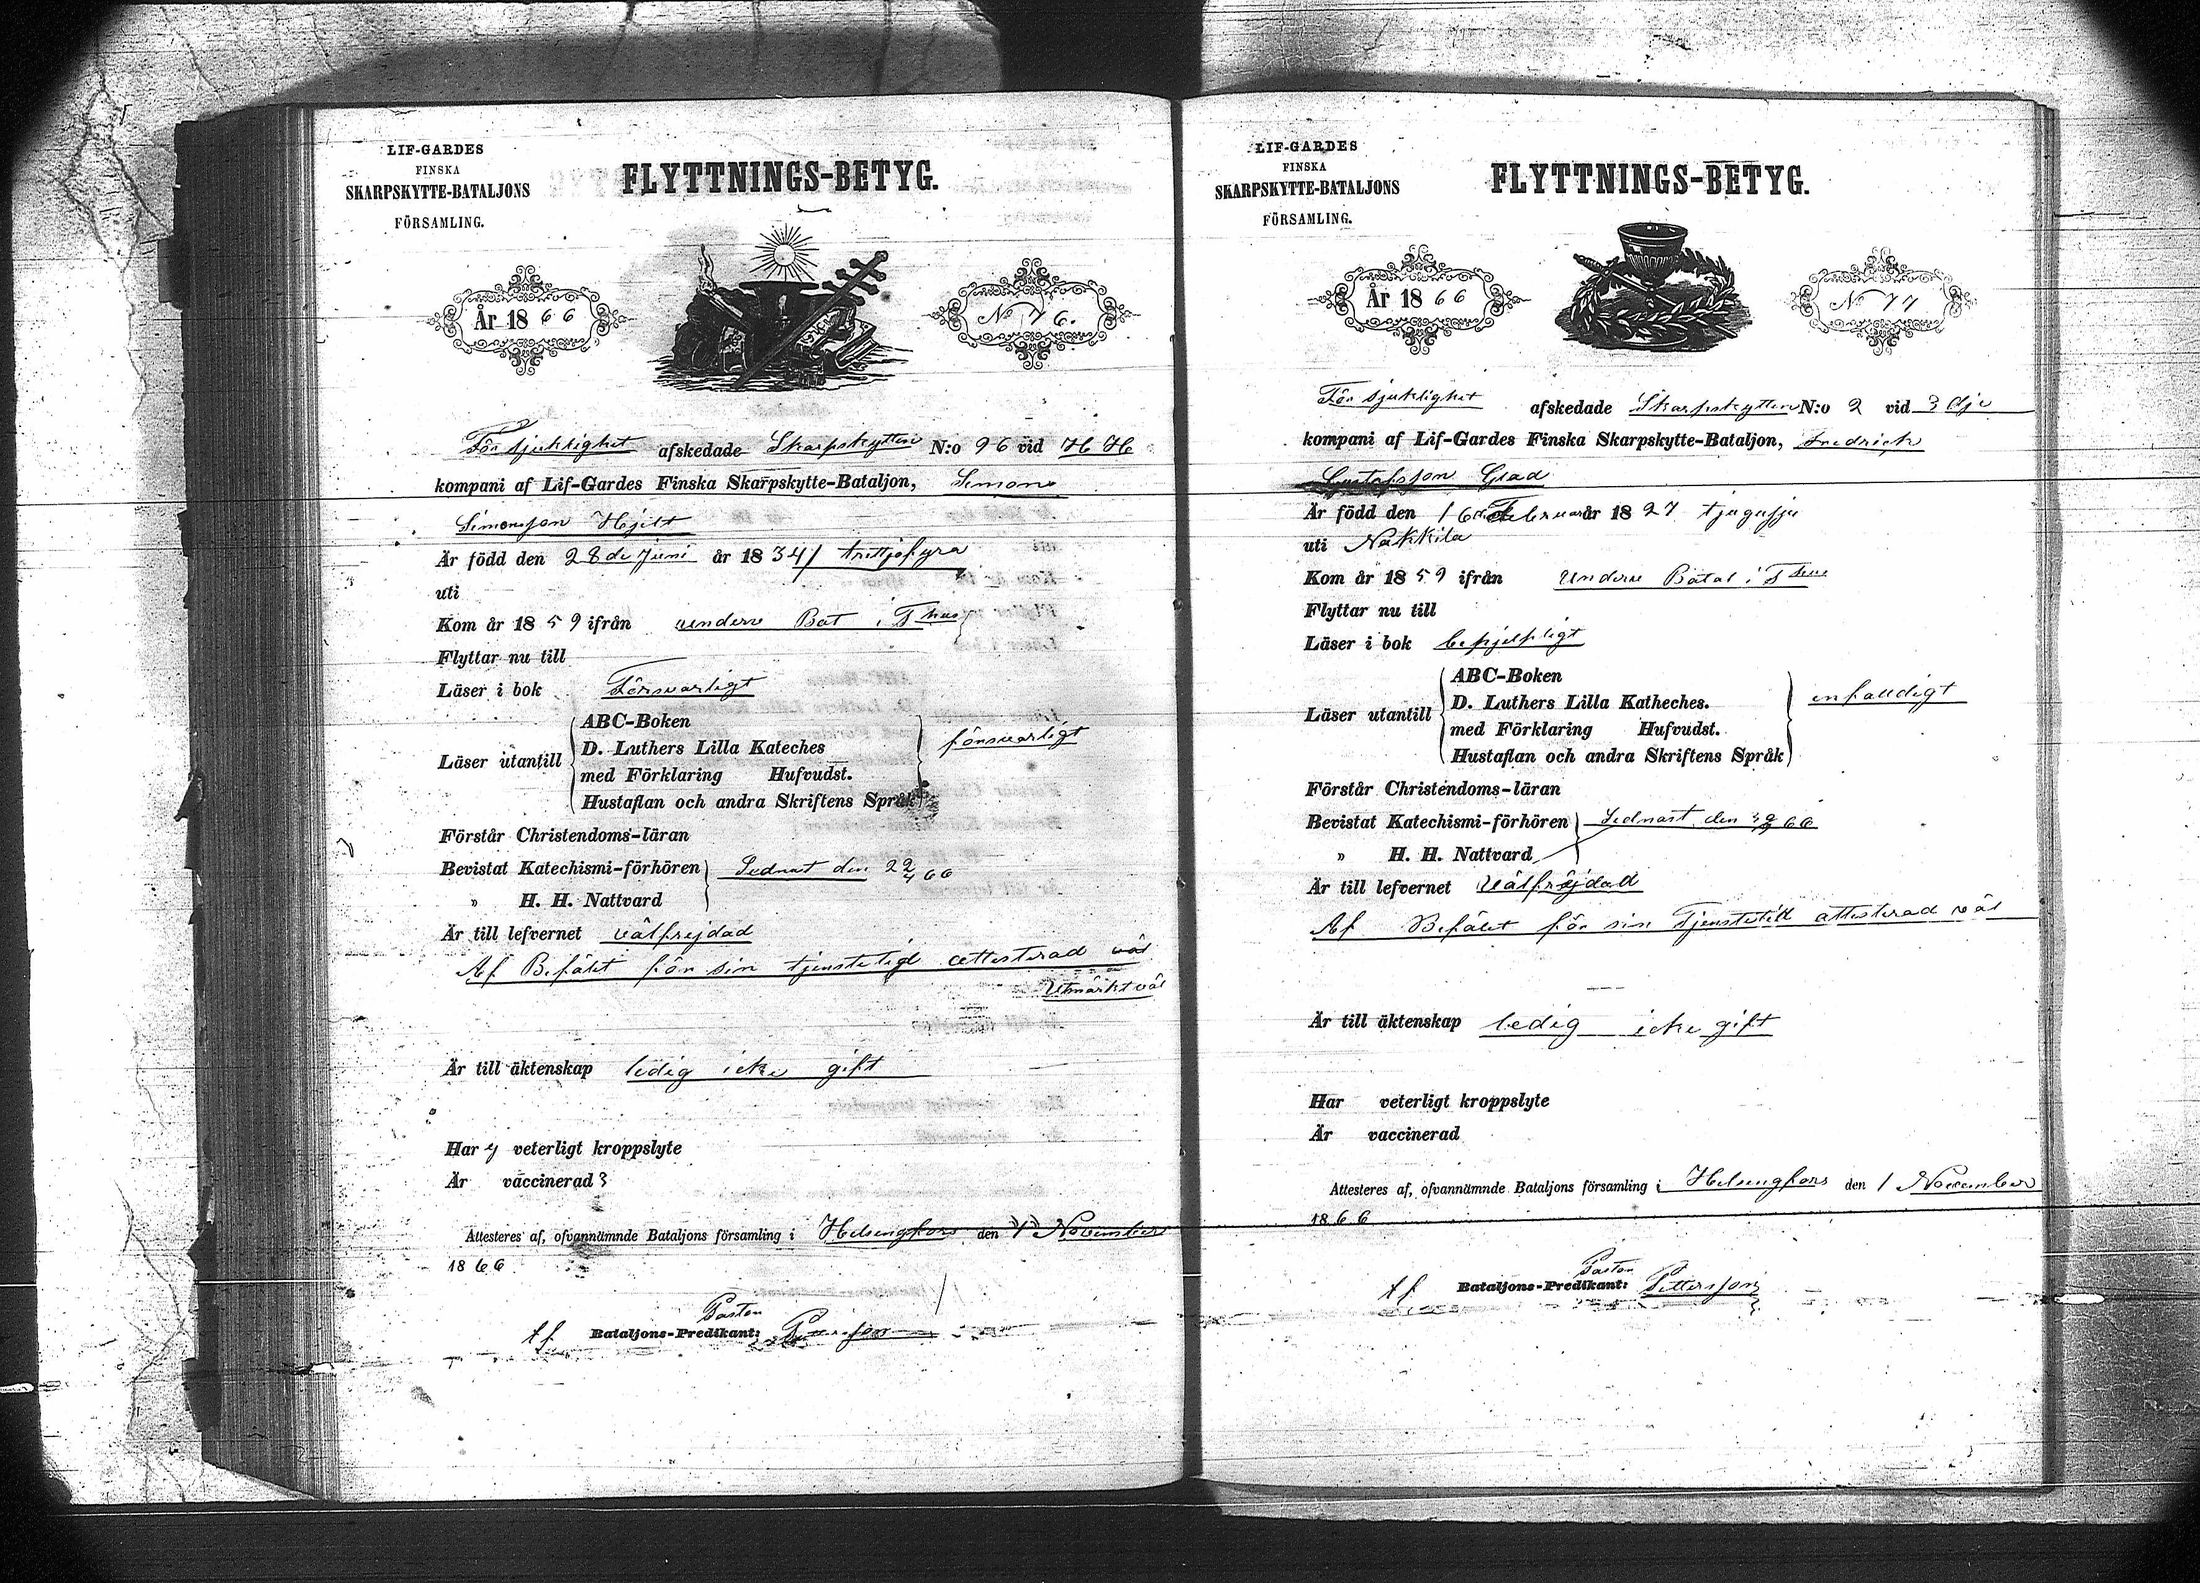 LIF-GARDES
FINSKA
SKARPSKYTTE-BATALJONS
FÖRSAMLING.
FLYTTNINGS-BETYG.
År 1866
No 76.
För sjuklighet afskedade Skarpskytten N:o 96 vid H H
kompani af Lif-Gardes Finska Skarpskytte-Bataljon, Simon
Simonsson Hjelt
Är född den 28de Juni år 1834/ trettiofyra
uti
Kom år 1859 ifrån undere Bat i T hus
Flyttar nu till
Läser i bok Försvarligt
Läser utantill
ABC-Boken
D. Luthers Lilla Kateches
med Förklaring Hufvudst.
Hustaflan och andra Skriftens Språk
försvarligt
Förstår Christendoms-läran
Bevistat Katechismi-förhören Sednast den 22/4 66
" H. H. Nattvard
Är till lefvernet välfrejdad
Af Befälet för sin tjenstetid attesterad väl
Utmärkt väl
Är till äktenskap ledig icke gift
Har ej veterligt kroppslyte
Är vaccinerad
Attesteres af, ofvannämnde Bataljons församling i Helsingfors den 1 November
1866
Pastor
Bataljons-Predikant:
LIF-GARDES
FINSKA
SKARPSKYTTE-BATALJONS
FÖRSAMLING.
FLYTTNINGS-BETYG.
År 1866
No 77
För sjuklighet afskedade Skarpskytten N:o 2 vid 3dje
kompani af Lif-Gardes Finska Skarpskytte-Bataljon, Fredrick
Gustafsson Glad
Är född den 16de Februari år 1827 tjugusju
uti Nakkila
Kom år 1859 ifrån undere Batal i T hus
Flyttar nu till
Läser i bok behjelpligt
Läser utantill
ABC-Boken
D. Luthers Lilla Katheches.
med Förklaring Hufvudst.
Hustaflan och andra Skriftens Språk
enfaldigt
Förstår Christendoms-läran
Bevistat Katechismi-förhören Sednast den 66
" H. H. Nattvard
Är till lefvernet Välfrejdad
Af Befälet för sin Tjenstetid attesterad väl
Är till äktenskap ledig icke gift
Har veterligt kroppslyte
Är vaccinerad
Attesteres af, ofvannämnde Bataljons församling i Helsingfors den 1 November
1866
Pastor
Bataljons-Predikant: Pettersson